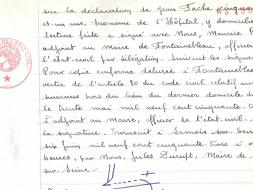 sur la déclaration de Jean Fache, cinquante
et-un ans, économe de l'Hôpital y domicilié
Lecture faite a signé avec Nous, Maurice
adjoint au maire de Fontainebleau, officier
de l'état-civil par délégation. Suivent les signatures
Pour copie conforme délivrée à Fontainebleau
vertu de l'article 80 du code civil relatif aux
survenus hors du lieu du dernier domicile
le trente mai mil neuf cent cinquante
L'adjoint au maire, officier de l'état-civil.
la signature. Transcrit à Samois sur Seine
six juin mil neuf cent cinquante trois à
heures, par Nous, Jules Maire de
sur-Seine.